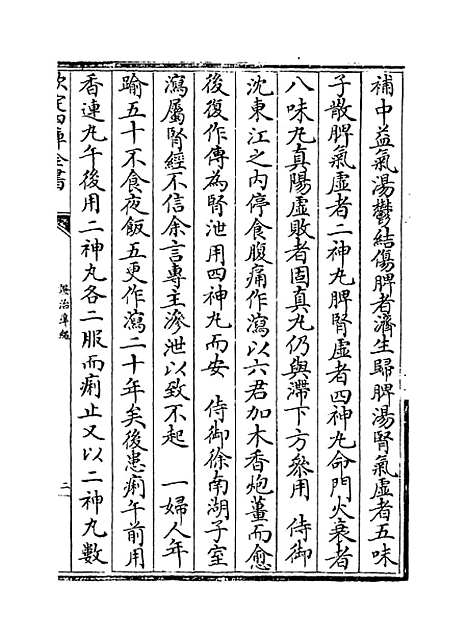 補中益氣湯鬱結傷脾者濟生歸脾湯腎氣虛者五味
子散脾氣虛者二神丸脾腎虛者四神丸命門火衰者
八味丸真陽虛敗者固真丸仍與滯下方叅用　侍御
沈東江之内停食腹痛作瀉以六君加木香炮薑而愈
後復作傳為腎泄用四神丸而安　侍御徐南湖子室
瀉屬腎經不信余言專主滲泄以致不起　一婦人年
踰五十不食夜飯五更作瀉二十年矣後患痢午前用
香連丸午後用二神丸各二服而痢止又以二神丸數
欽定四庫全書
證治凖繩
二